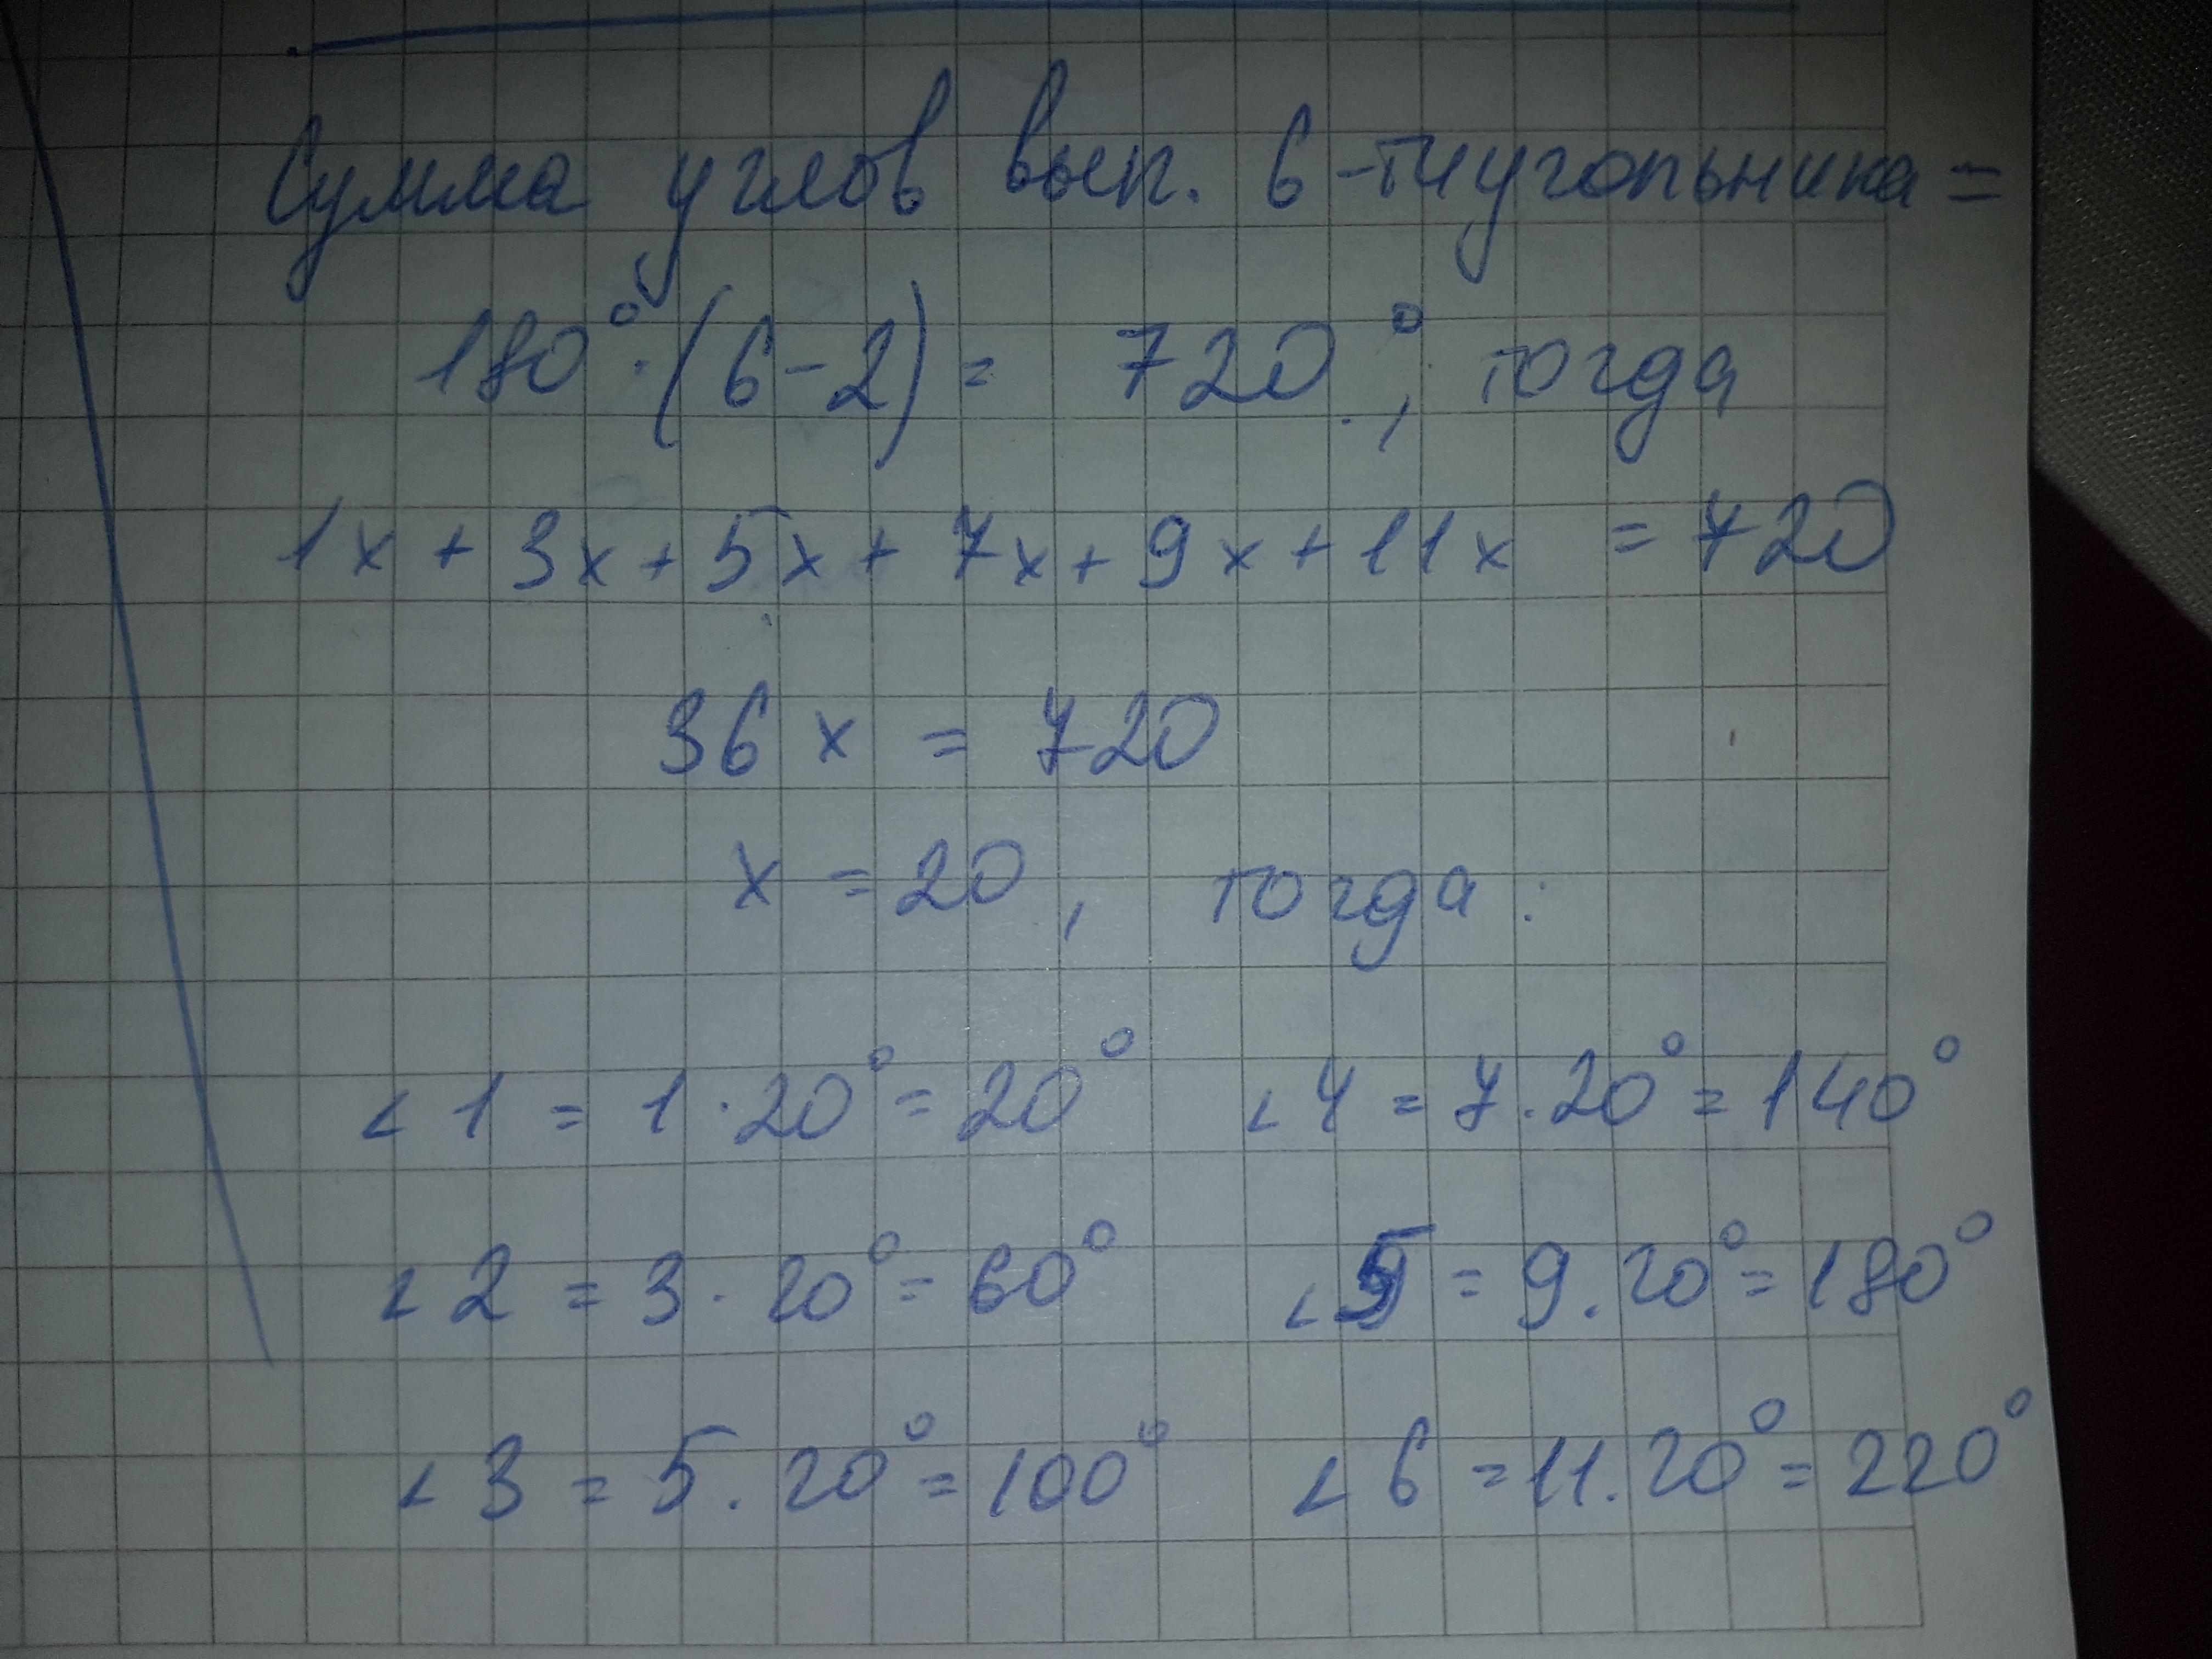 Сумма углов вып. 6-тиугольника =
180° · (6 - 2) = 720°, тогда
1x + 3x + 5x + 7x + 9x + 11x = 720
36x = 720
x = 20, тогда:
∠1 = 1 · 20° = 20° ∠4 = 7 · 20° = 140°
∠2 = 3 · 20° = 60° ∠5 = 9 · 20° = 180°
∠3 = 5 · 20° = 100° ∠6 = 11 · 20° = 220°